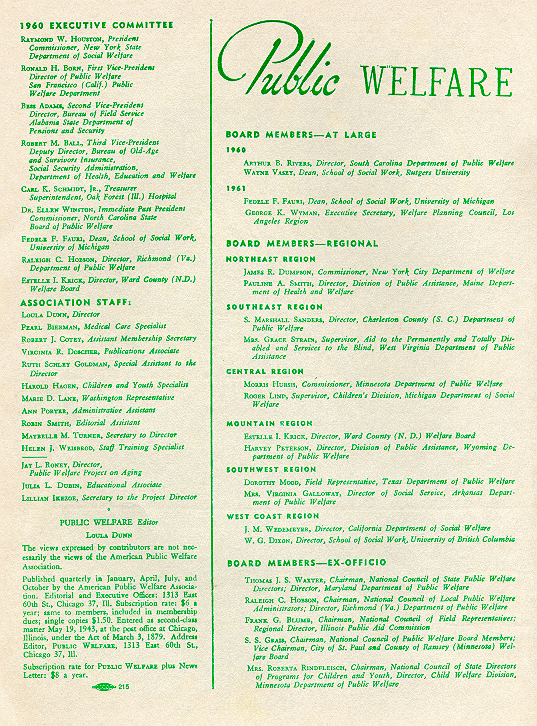 1960 EXECUTIVE COMMITTEE
RAYMOND W. HOUSTON, President
Commissioner, New York State
Department of Social Welfare
RONALD H. BORN, First Vice-President
Director of Public Welfare
San Francisco (Calif.) Public
Welfare Department
BESS ADAMS, Second Vice-President
Director, Bureau of Field Service
Alabama State Department of
Pensions and Security
ROBERT M. BALL, Third Vice-President
Deputy Director, Bureau of Old-Age
and Survivors Insurance,
Social Security Administration,
Department of Health, Education and Welfare
CARL K. SCHMIDT, JR., Treasurer
Superintendent, Oak Forest (Ill.) Hospital
DR. ELLEN WINSTON, Immediate Past President
Commissioner, North Carolina State
Board of Public Welfare
FEDELE F. FAURI, Dean, School of Social Work,
University of Michigan
RALEIGH C. HOBSON, Director, Richmond (Va.)
Department of Public Welfare
ESTELLE I. KRICK, Director, Ward County (N.D.)
Welfare Board
ASSOCIATION STAFF:
LOULA DUNN, Director
PEARL BIERMAN, Medical Care Specialist
ROBERT J. COTEY, Assistant Membership Secretary
VIRGINIA R. DOSCHER, Publications Associate
RUTH SCHLEY GOLDMAN, Special Assistant to the
Director
HAROLD HAGEN, Children and Youth Specialist
MARIE D. LANE, Washington Representative
ANN PORTER, Administrative Assistant
ROBIN SMITH, Editorial Assistant
MAYBELLE M. TURNER, Secretary to Director
HELEN J. WEISBROD, Staff Training Specialist
JAY L. RONEY, Director,
Public Welfare Project on Aging
JULIA L. DUBIN, Educational Associate
LILLIAN IKEZOE, Secretary to the Project Director
PUBLIC WELFARE Editor
LOULA DUNN
The views expressed by contributors are not nec-
essarily the views of the American Public Welfare
Association.
Published quarterly in January, April, July, and
October by the American Public Welfare Associa-
tion. Editorial and Executive Offices: 1313 East
60th St., Chicago 37, Ill. Subscription rate: $6 a
year; same to members, included in membership
dues; single copies $1.50. Entered as second-class
matter May 19, 1943, at the post office at Chicago,
Illinois, under the Act of March 3, 1879. Address
Editor, PUBLIC WELFARE, 1313 East 60th St.,
Chicago 37, Ill.
Subscription rate for PUBLIC WELFARE plus News
Letter: $8 a year.
215
Public WELFARE
BOARD MEMBERS—AT LARGE
1960
ARTHUR B. RIVERS, Director, South Carolina Department of Public Welfare
WAYNE VASEY, Dean, School of Social Work, Rutgers University
1961
FEDELE F. FAURI, Dean, School of Social Work, University of Michigan
GEORGE K. WYMAN, Executive Secretary, Welfare Planning Council, Los
Angeles Region
BOARD MEMBERS—REGIONAL
NORTHEAST REGION
JAMES R. DUMPSON, Commissioner, New York City Department of Welfare
PAULINE A. SMITH, Director, Division of Public Assistance, Maine Depart-
ment of Health and Welfare
SOUTHEAST REGION
S. MARSHALL SANDERS, Director, Charleston County (S. C.) Department of
Public Welfare
MRS. GRACE STRAIN, Supervisor, Aid to the Permanently and Totally Dis-
abled and Services to the Blind, West Virginia Department of Public
Assistance
CENTRAL REGION
MORRIS HURSH, Commissioner, Minnesota Department of Public Welfare
ROGER LIND, Supervisor, Children's Division, Michigan Department of Social
Welfare
MOUNTAIN REGION
ESTELLE I. KRICK, Director, Ward County (N. D.) Welfare Board
HARVEY PETERSON, Director, Division of Public Assistance, Wyoming De-
partment of Public Welfare
SOUTHWEST REGION
DOROTHY MOOD, Field Representative, Texas Department of Public Welfare
MRS. VIRGINIA GALLOWAY, Director of Social Service, Arkansas Depart-
ment of Public Welfare
WEST COAST REGION
J. M. WEDEMEYER, Director, California Department of Social Welfare
W. G. DIXON, Director, School of Social Work, University of British Columbia
BOARD MEMBERS—EX-OFFICIO
THOMAS J. S. WAXTER, Chairman, National Council of State Public Welfare
Directors; Director, Maryland Department of Public Welfare
RALEIGH C. HOBSON, Chairman, National Council of Local Public Welfare
Administrators; Director, Richmond (Va.) Department of Public Welfare
FRANK G. BLUME, Chairman, National Council of Field Representatives;
Regional Director, Illinois Public Aid Commission
S. S. GRAIS, Chairman, National Council of Public Welfare Board Members;
Vice Chairman, City of St. Paul and County of Ramsey (Minnesota) Wel-
fare Board
MRS. ROBERTA RINDFLEISCH, Chairman, National Council of State Directors
of Programs for Children and Youth; Director, Child Welfare Division,
Minnesota Department of Public Welfare